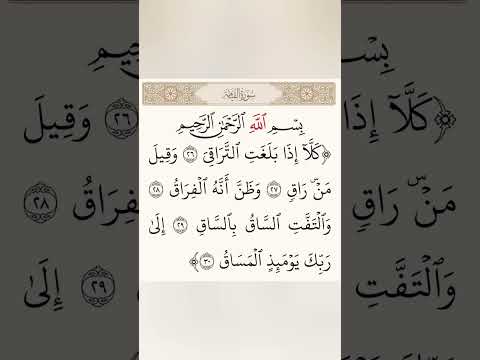 سُورَةُ القِيَامَةِ
بِسْمِ ٱللَّهِ ٱلرَّحْمَٰنِ ٱلرَّحِيمِ
﴿كَلَّآ إِذَا بَلَغَتِ ٱلتَّرَاقِيَ ۝٢٦ وَقِيلَ
مَنْۜ رَاقٍ ۝٢٧ وَظَنَّ أَنَّهُ ٱلْفِرَاقُ ۝٢٨
وَٱلْتَفَّتِ ٱلسَّاقُ بِٱلسَّاقِ ۝٢٩ إِلَىٰ
رَبِّكَ يَوْمَئِذٍ ٱلْمَسَاقُ ۝٣٠﴾